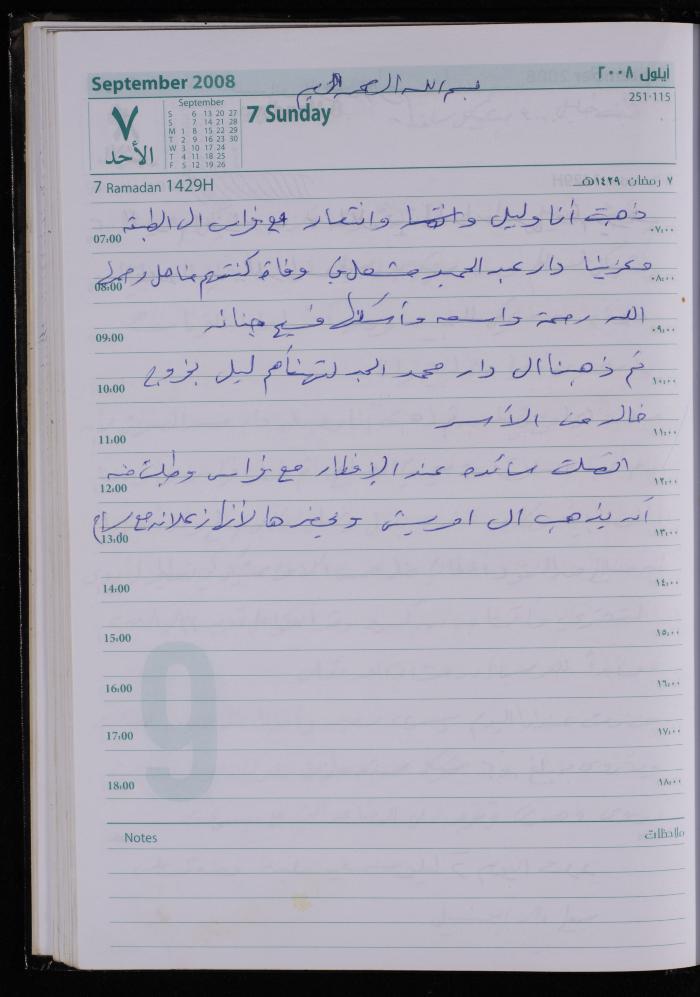 September 2008
بسم الله الرحمن الرحيم
أيلول ٢٠٠٨
251-115
٧
الأحد
September
S 6 13 20 27
S 7 14 21 28
M 1 8 15 22 29
T 2 9 16 23 30
W 3 10 17 24
T 4 11 18 25
F 5 12 19 26
7 Sunday
7 Ramadan 1429H
٧ رمضان ١٤٢٩هـ
ذهبت أنا وليل وانتصار مع فراس الى الطبقة
07:00 ٠٧:٠٠
وعزينا دار عبد الحميد مشعل وفاة كنتهم مناهل رحمها
08:00 ٠٨:٠٠
الله رحمة واسعه وأسكنها فسيح جنانه
09:00 ٠٩:٠٠
ثم ذهبنا الى دار محمد لتهنأهم ليل بخروج
10:00 ١٠:٠٠
خالد من الأسر
11:00 ١١:٠٠
اتصلت سائده عند الإفطار مع فراس وطلبت منه
12:00 ١٢:٠٠
أنه يذهب الى ويحضرها لأنها زعلانه مع
13:00 ١٣:٠٠
14:00 ١٤:٠٠
15:00 ١٥:٠٠
16:00 ١٦:٠٠
17:00 ١٧:٠٠
18:00 ١٨:٠٠
9
Notes ملاحظات